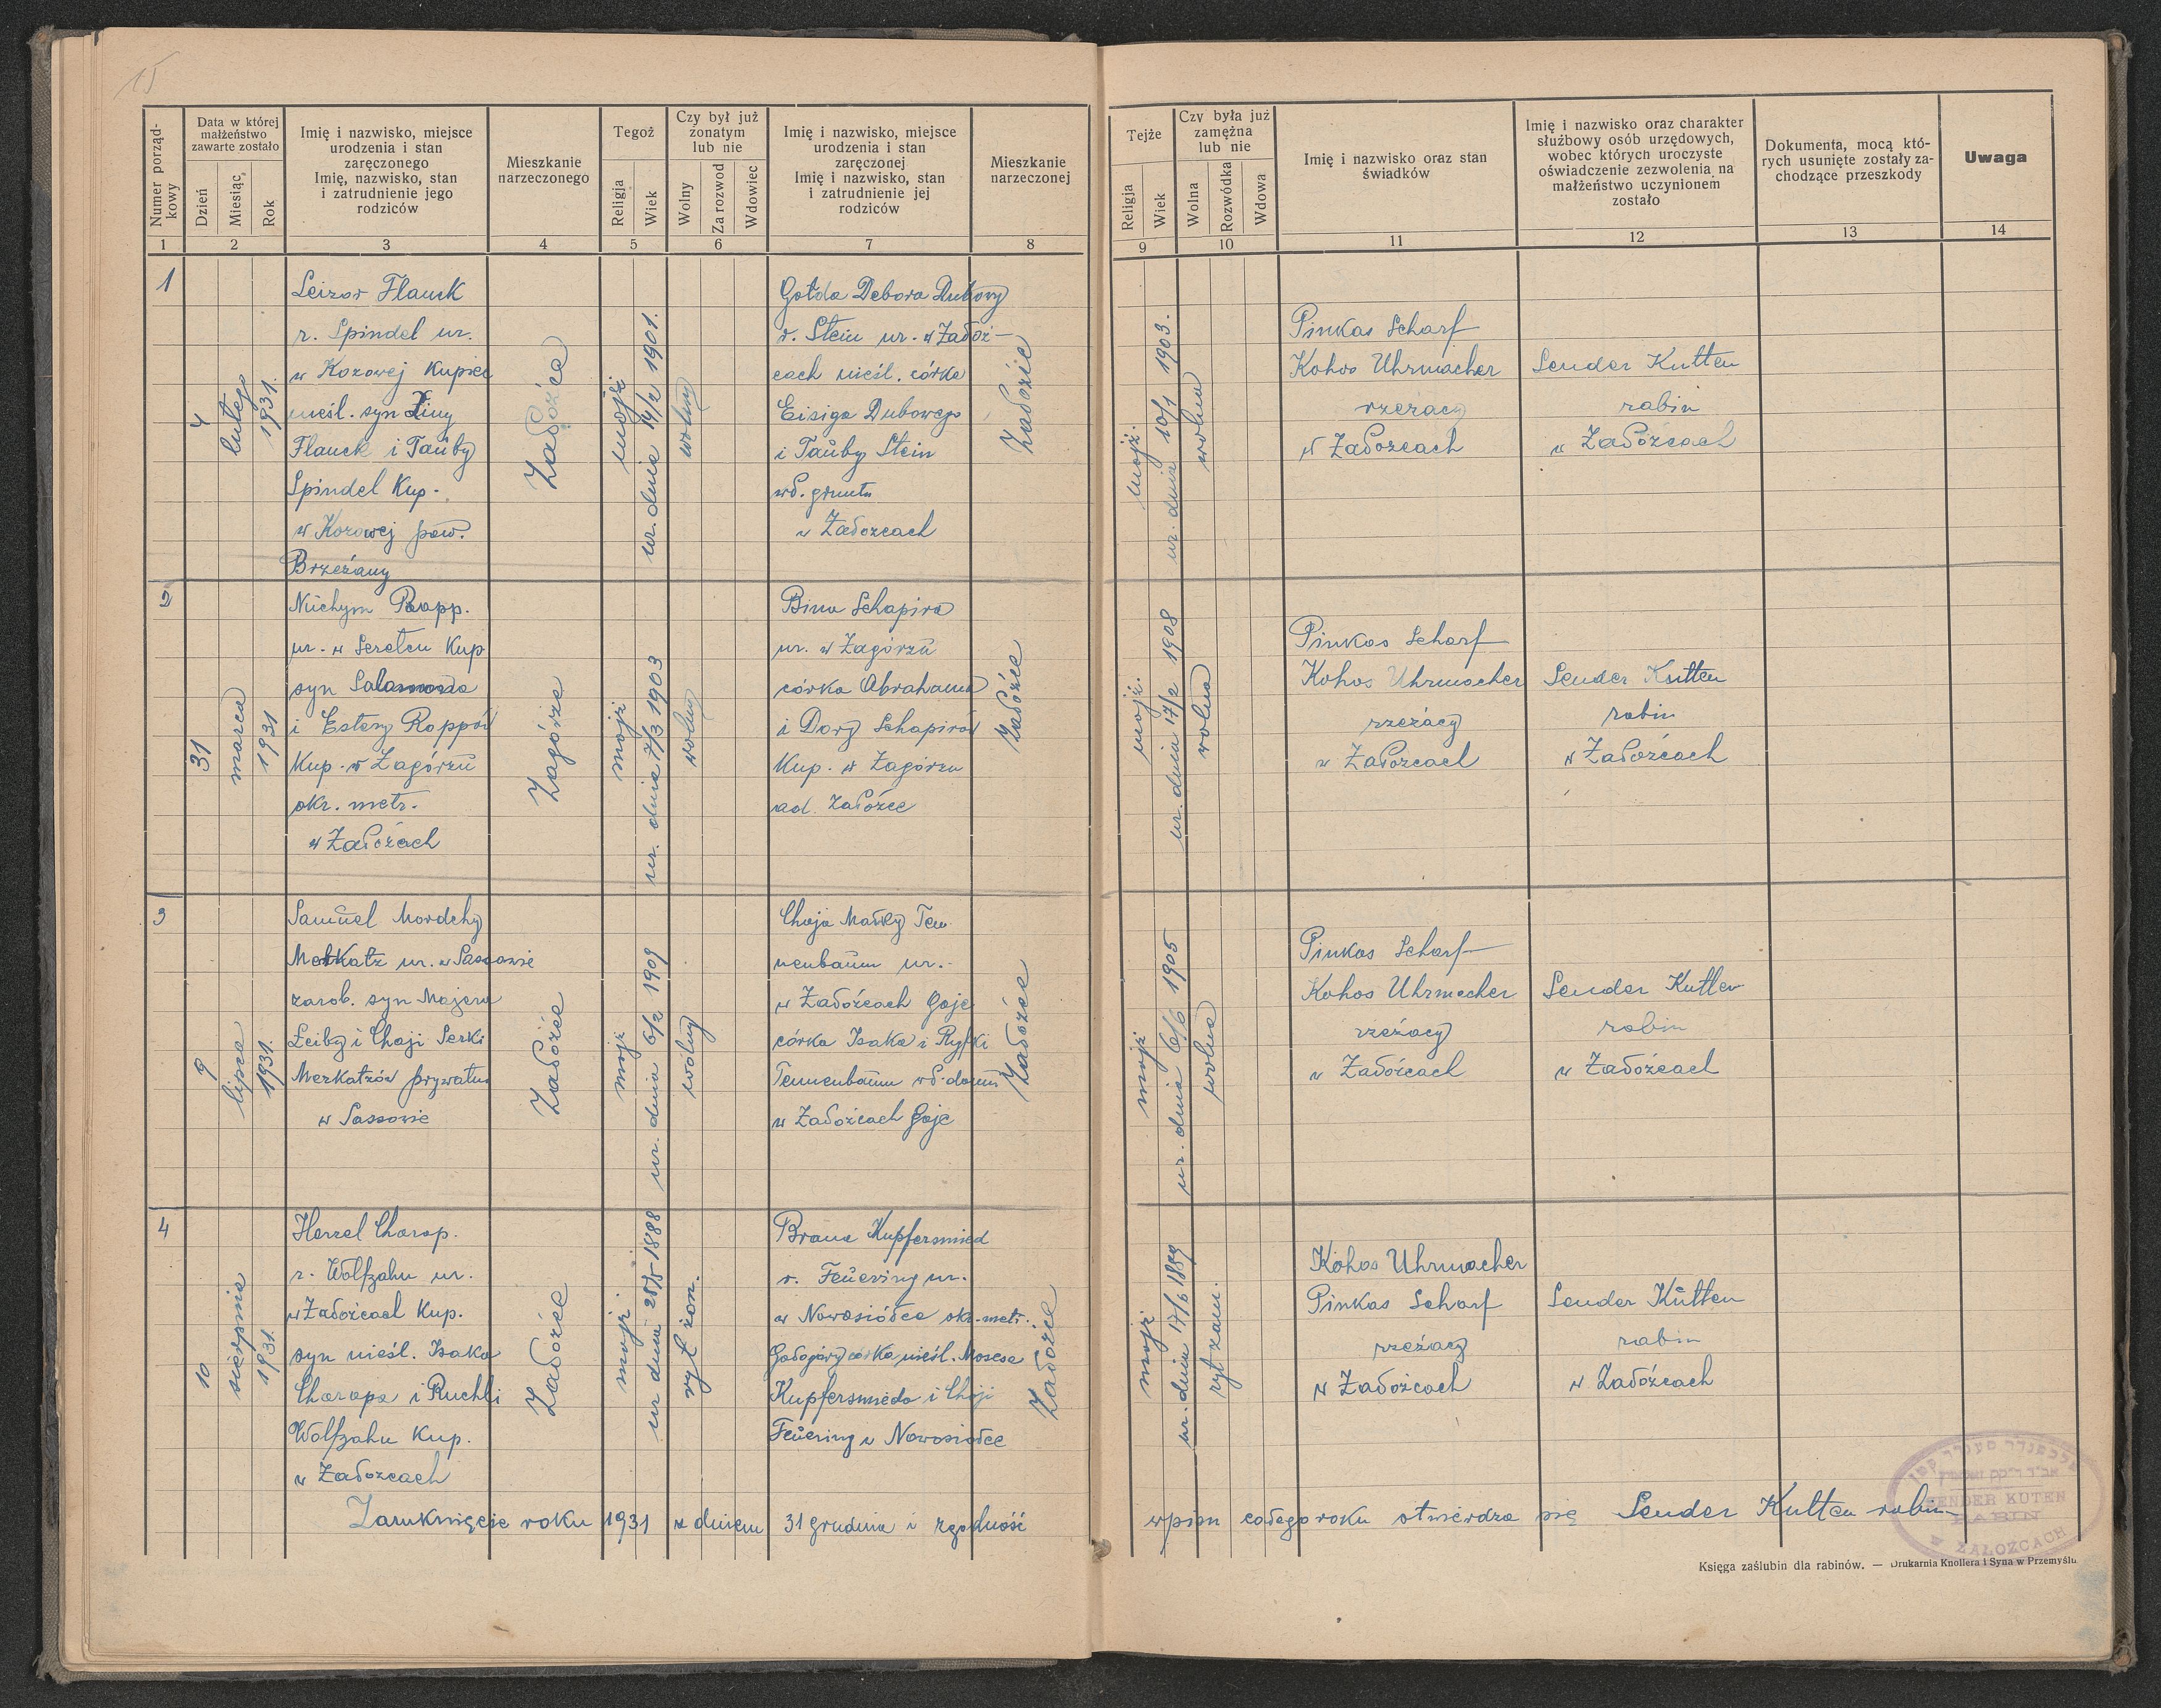 15
Numer porząd-
kowy
Data w której
małżeństwo
zawarte zostało
Dzień
Miesiąc
Rok
Imię i nazwisko, miejsce
urodzenia i stan
zaręczonego
Imię, nazwisko, stan
i zatrudnienie jego
rodziców
Mieszkanie
narzeczonego
Tegoż
Religja
Wiek
Czy był już
żonatym
lub nie
Wolny
Za rozwod
Wdowiec
Imię i nazwisko, miejsce
urodzenia i stan
zaręczonej
Imię i nazwisko, stan
i zatrudnienie jej
rodziców
Mieszkanie
narzeczonej
Tejże
Religja
Wiek
Czy była już
zamężna
lub nie
Wolna
Rozwódka
Wdowa
Imię i nazwisko oraz stan
świadków
Imię i nazwisko oraz charakter
służbowy osób urzędowych,
wobec których uroczyste
oświadczenie zezwolenia na
małżeństwo uczynionem
zostało
Dokumenta, mocą któ-
rych usunięte zostały za-
chodzące przeszkody
Uwaga
1 2 3 4 5 6 7 8 9 10 11 12 13 14
1
4
lutego
1931.
Leizor Flauck
r. Spindel ur.
w Kozowej Kupiec
nieśl. syn Ziny
Flauck i Tauby
Spindel Kup.
w Kozowej pow.
Brzeżany
Załoźce
mojż
ur. dnia 14/2 1901.
wolny
Gołda Debora Dubowy
r. Stein ur. w Załoź-
cach nieśl. córka
Eisiga Dubowego
i Tauby Stein
wł. gruntu
w Załozcach
Załoźce
mojż.
ur. dnia 10/1 1903.
wolna
Pinkas Scharf
Kohos Uhrmacher
rzezacy
w Załozcach
Sender Kutten
rabin
w Załoźcach
2
31
marca
1931
Nuchym Rapp.
ur. w Seretcu Kup
syn Salamona
i Estery Rappów
Kup. w Zagórzu
okr. metr.
w Załoźach
Zagórze
mojż
ur. dnia 7/3 1903
wolny
Bina Schapira
ur. w Zagórzu
córka Abrahama
i Dory Schapirów
Kup. w Zagórzu
ad. Załoźce
Załoźce
mojż.
ur. dnia 17/2 1908
wolna
Pinkas Scharf
Kohos Uhrmacher
rzezacy
w Załozcach
Sender Kutten
rabin
w Załoźcach
3
9
lipca
1931.
Samuel Mordchy
Merkatz ur. w Sassowie
zarob. syn Majera
Leiby i Chaji Serki
Merkatzów prywatna
w Sassowie
Załoźce
mojż
ur. dnia 6/2 1909
wolny
Chaja Małky Ten
nenbaum ur.
w Załoźcach Goje
córka Isaka i Ryfki
Tennenbaum wł. domu
w Załoźcach Goje
Załoźce
mojż
ur. dnia 6/6 1905
wolna
Pinkas Scharf
Kohos Uhrmacher
rzezacy
w Załoźcach
Sender Kutten
rabin
w Załoźcach
4
10
sierpnia
1931.
Herzel Charap.
r. Wolfzahn ur.
w Załoźcach Kup.
syn nieśl. Isaka
Charapa i Ruchli
Wolfzahn Kup.
w Załozcach
Załoźce
mojż
ur dnia 25/5 1888
ryt żon.
Brana Kupfersmied
r. Feuering ur.
w Nowosiółce okr. metr.
Gołogóry córka nieśl. Mosesa
Kupfersmieda i Chaji
Feuering w Nowosiółce
Załoźce
mojż
ur. dnia 17/6 1889
ryt zam.
Kohos Uhrmacher
Pinkas Scharf
rzezacy
w Załoźcach
Sender Kutten
rabin
w Załoźcach
Zamknięcie roku 1931 z dniem 31 grudnia i zgodność wpisu całego roku stwierdza się Sender Kutten rabin
SENDER KUTEN
RABIN
w ZAŁOŹCACH
Księga zaślubin dla rabinów. — Drukarnia Knollera i Syna w Przemyślu